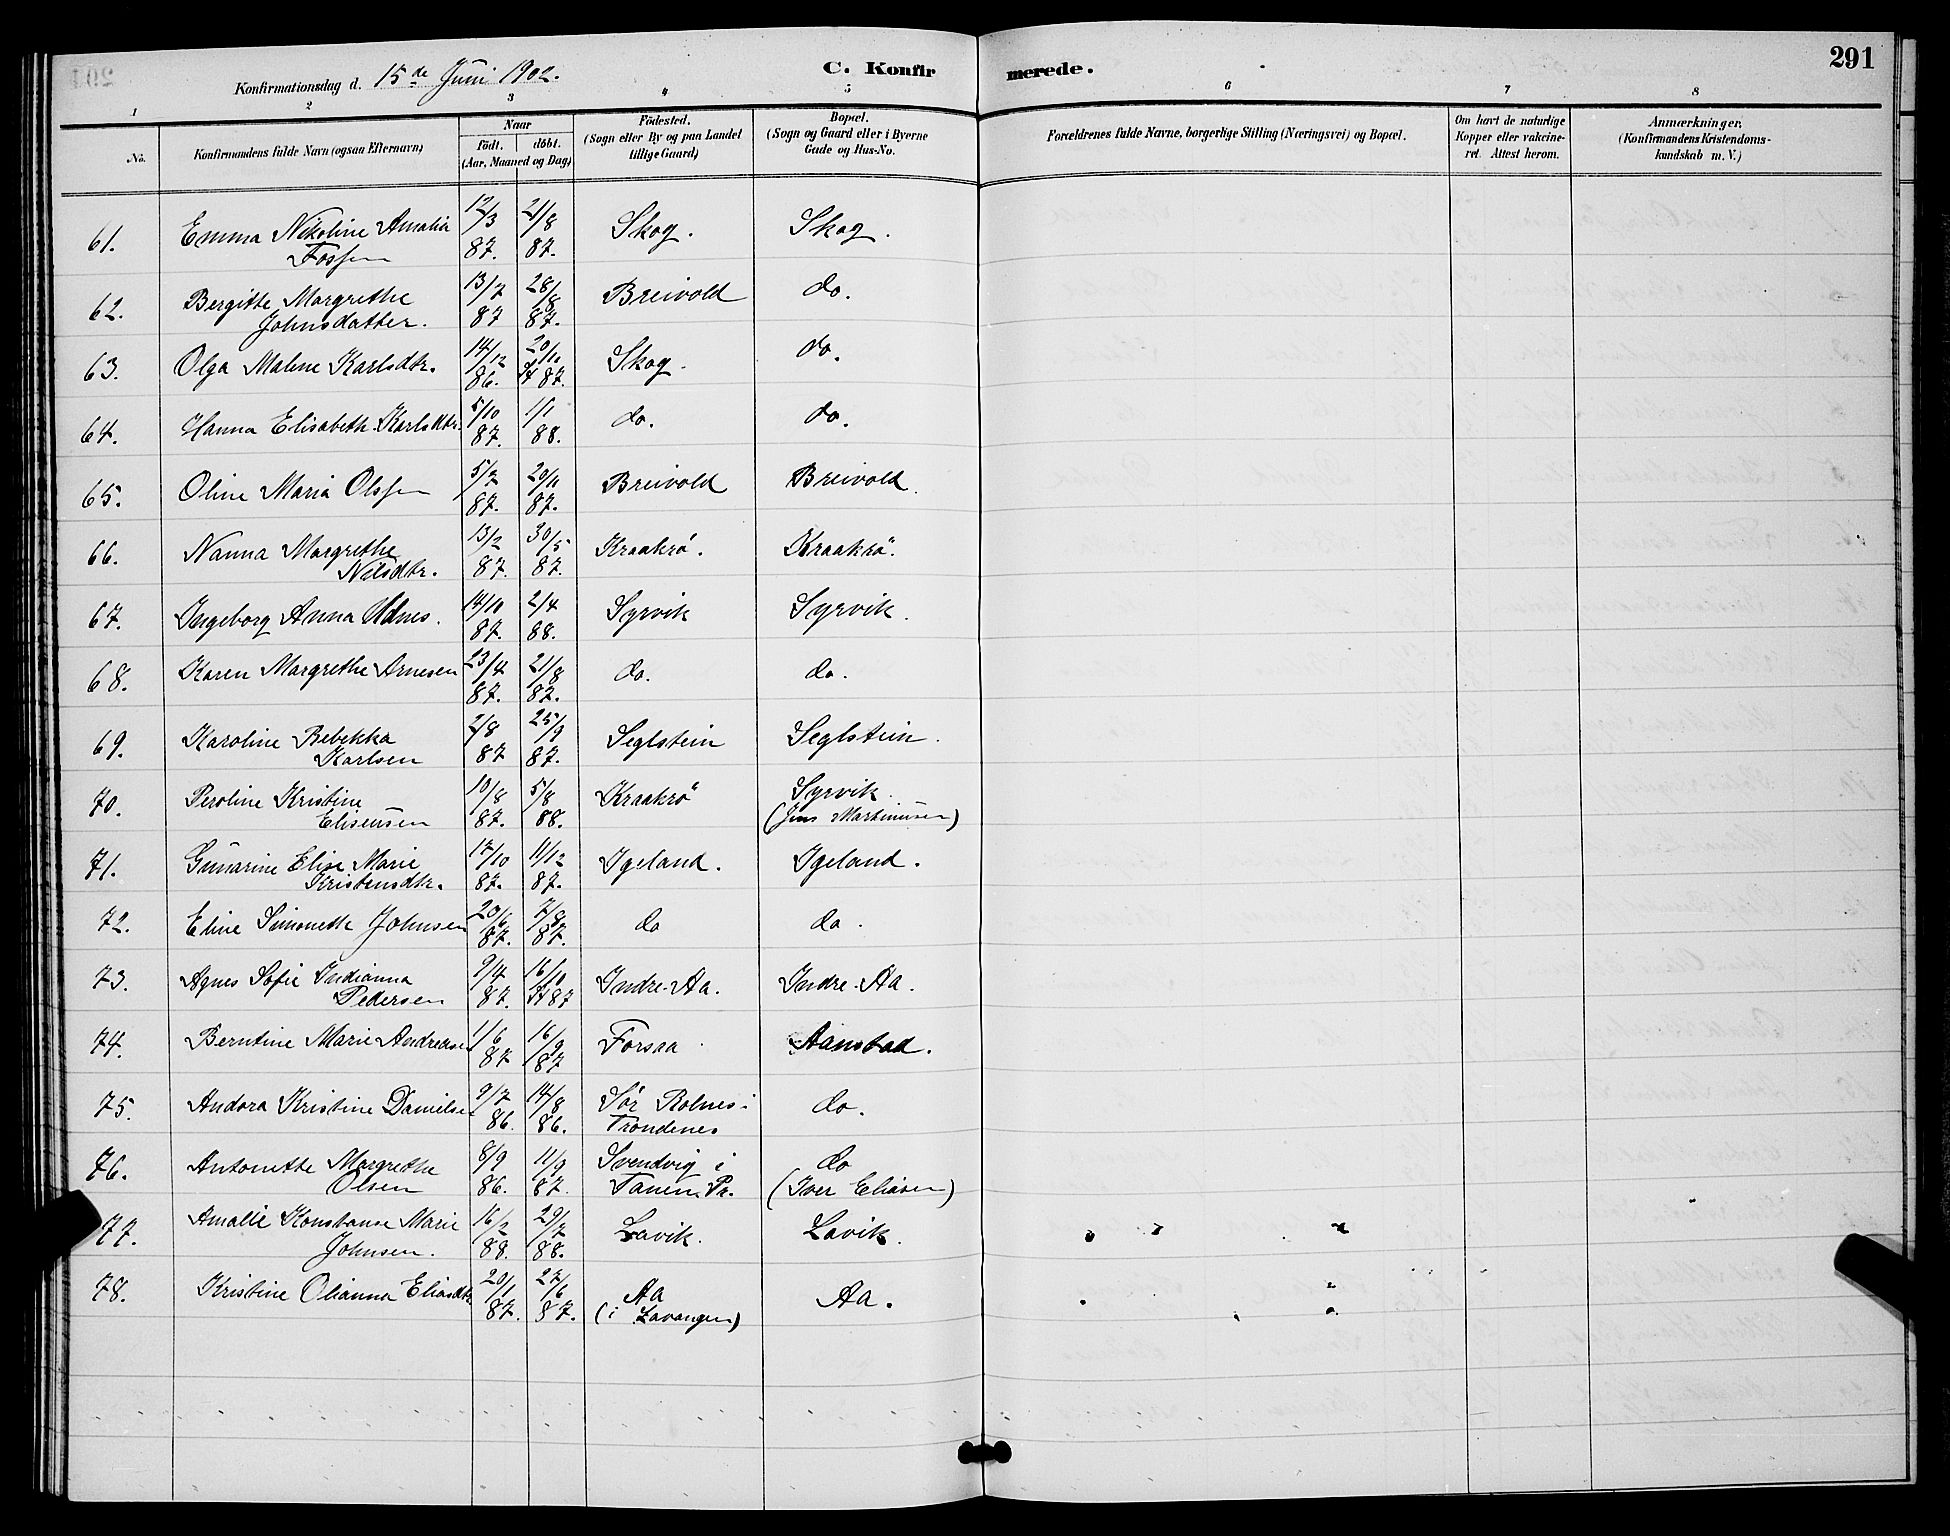 Konfirmationsdag d. 15de Juni 1902.
C. Konfirmerede.
291
1 2 3 4 5 6 7 8
No.
Konfirmandens fulde Navn (ogsaa Efternavn)
Naar
födt. döbt.
(Aar, Maaned og Dag)
Födested.
(Sogn eller By og paa Landet
tillige Gaard)
Bopæl.
(Sogn og Gaard eller i Byerne
Gade og Hus-No.
Forældrenes fulde Navne, borgerlige Stilling (Næringsvei) og Bopæl.
Om havt de naturlige
Kopper eller vakcine-
ret. Attest herom.
Anmærkninger,
(Konfirmandens Kristendoms-
kundskab m. V.)
61. Emma Nikoline Amalia 12/3 21/8 Skog. Skog.
Fossen 87. 87.
62. Bergitte Margrethe 13/7 28/8 Breivold do.
Johnsdatter. 87 87.
63. Olga Malene Karlsdtr. 14/12 20/10 Skog. do.
86. 87.
64. Hanna Elisabeth Karlsdtr. 5/10 1/1 do. do.
87. 88.
65. Oline Maria Olsen 5/7 20/11 Breivold Breivold.
87. 87.
66. Nanna Margrethe 13/2 30/5 Kraakrö. Kraakrö.
Nilsdtr. 87. 87.
67. Ingeborg Anna Udnes. 14/10 2/4 Syrvik Syrvik.
87. 88.
68. Karen Margrethe Arnesen 23/4 21/8 do. do.
87. 87.
69. Karoline Rebekka 2/8 25/9 Seglstein Seglstein.
Karlsen 87 87.
70. Peroline Kristine 10/8 5/8 Kraakrö Syrvik.
Eliseussen 87. 88. (Jens Martinusen)
71. Gunarine Eline Marie 17/10 11/12 Igeland. Igeland.
Kristensdtr. 87. 87.
72. Eline Simonette Johnsen 20/6 7/8 do do.
87. 87.
73. Agnes Sofie Indianna 9/4 16/10 Indre-Aa. Indre-Aa.
Pedersen 87. 87
74. Berntine Marie Andreasen 1/6 16/9 Forsaa Aanstad.
87 87
75. Andora Kristine Danielsen 9/7 14/8 Sör Rolnes i do.
86. 86. Trondenes
76. Antonette Margrethe 8/9 11/9 Svendvig i do
Olsen 86. 87. Tanem Pr. (Iver Eliasen)
77. Amalie Konstanse Marie 16/2 29/7 Lavik. Lavik.
Johnsen. 88. 88.
78. Kristine Olianna Eliasdtr 20/1 27/6 Aa Aa.
87. 87. (i Lavangen)